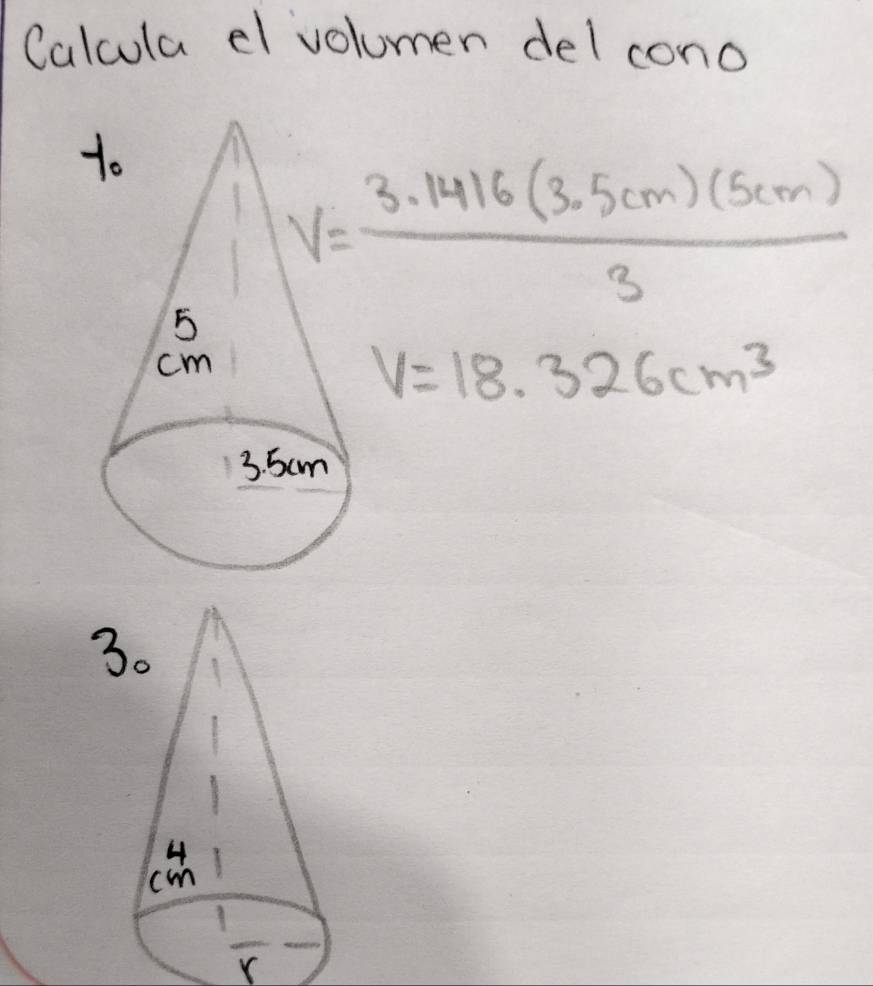 Calcula el volumen del cono
1.
V = 3.1416 (3.5cm) (5cm) / 3
5
cm
V = 18.326cm³
3.5cm
3.
4
cm
r